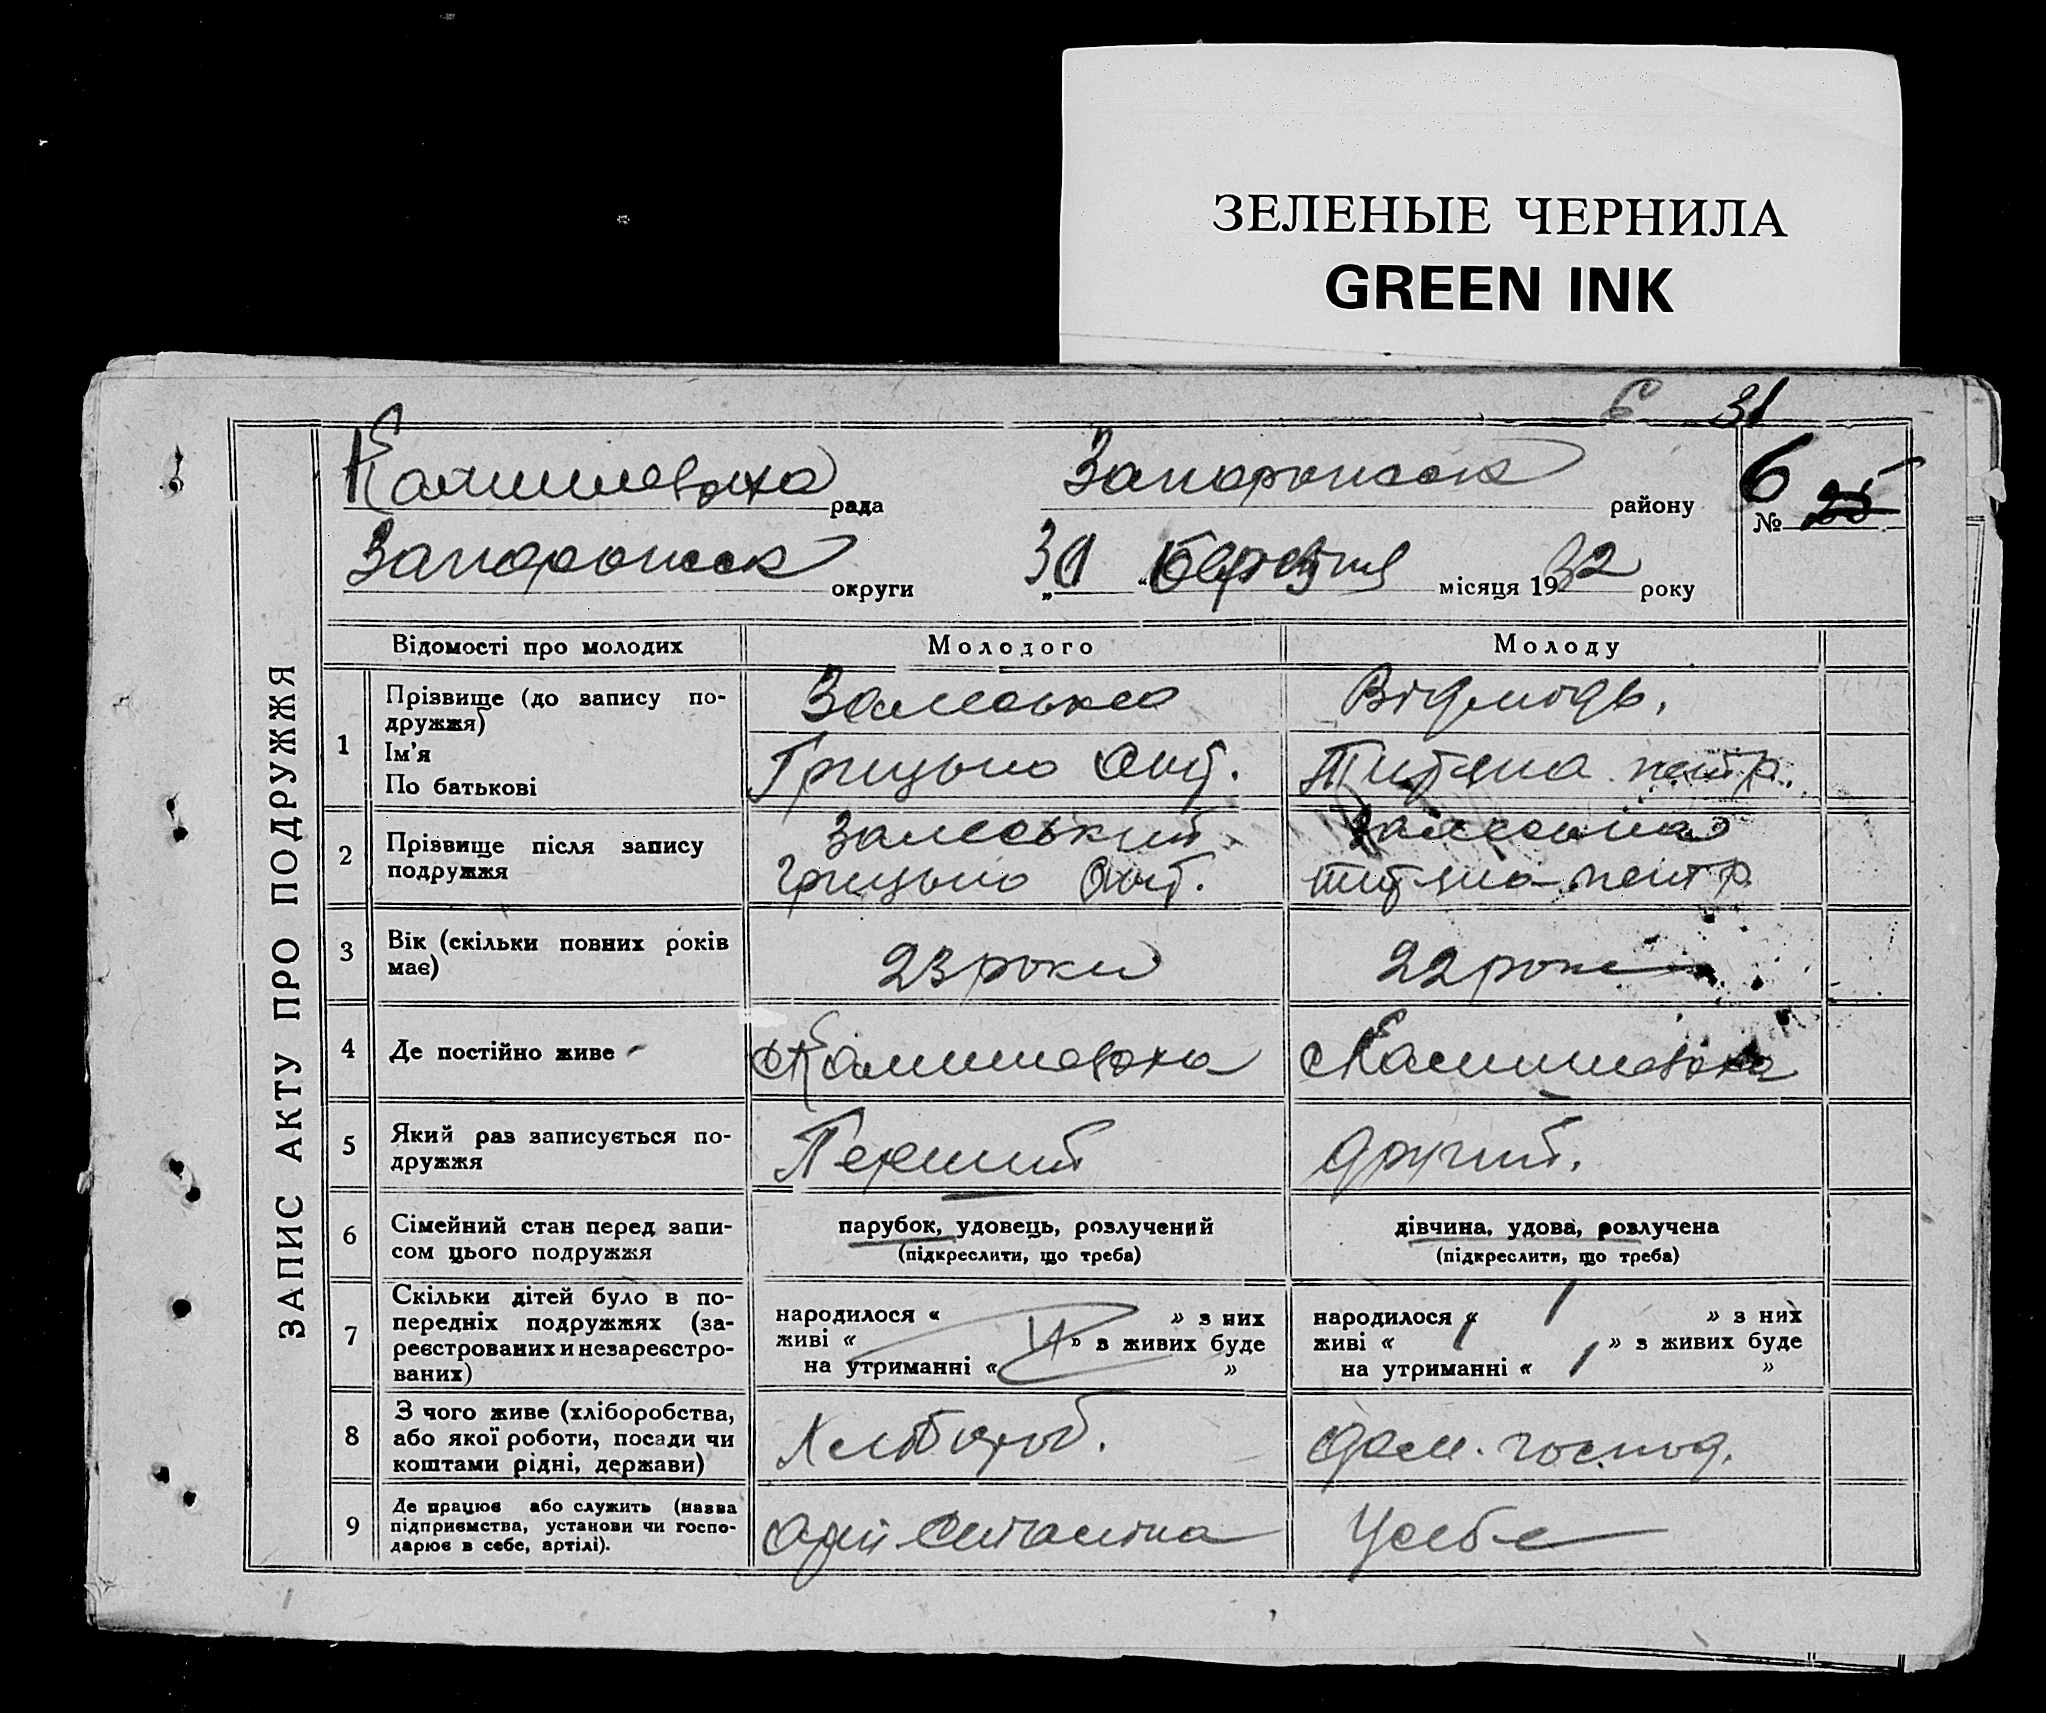 ЗЕЛЕНЫЕ ЧЕРНИЛА
GREEN INK
6 31
Камишеваха рада Запоріжськ району № 6 25
Запоріжськ округи „30 "березня місяця 1932 року
ЗАПИС АКТУ ПРО ПОДРУЖЖЯ
Відомості про молодих Молодого Молоду
1 Прізвище (до запису по-
дружжя)
Ім'я
По батькові
Залеське
Грицько Ант.
Відмідь.
Титяна петр.
2 Прізвище після запису
подружжя
Залеський
Грицько Ант.
Залеська
титяна петр
3 Вік (скільки повних років
має)
23 роки
22 роки
4 Де постійно живе
Камишеваха
Камишеваха
5 Який раз записується по-
дружжя
Перший
другий.
6 Сімейний стан перед запи-
сом цього подружжя
парубок, удовець, розлучений
(підкреслити, що треба)
дівчина, удова, розлучена
(підкреслити, що треба)
7 Скільки дітей було в по-
передніх подружжях (за-
реєстрованих и незареєстро-
ваних)
народилося « » з них
живі « » з живих буде
на утриманні « »
народилося « 1 » з них
живі « 1 » з живих буде
на утриманні « 1 »
8 З чого живе (хліборобства,
або якої роботи, посади чи
коштами рідні, держави)
Хлібороб.
дом. господ.
9 Де працює або служить (назва
підприємства, установи чи госпо-
дарює в себе, артілі).
Сталіна
Усебе